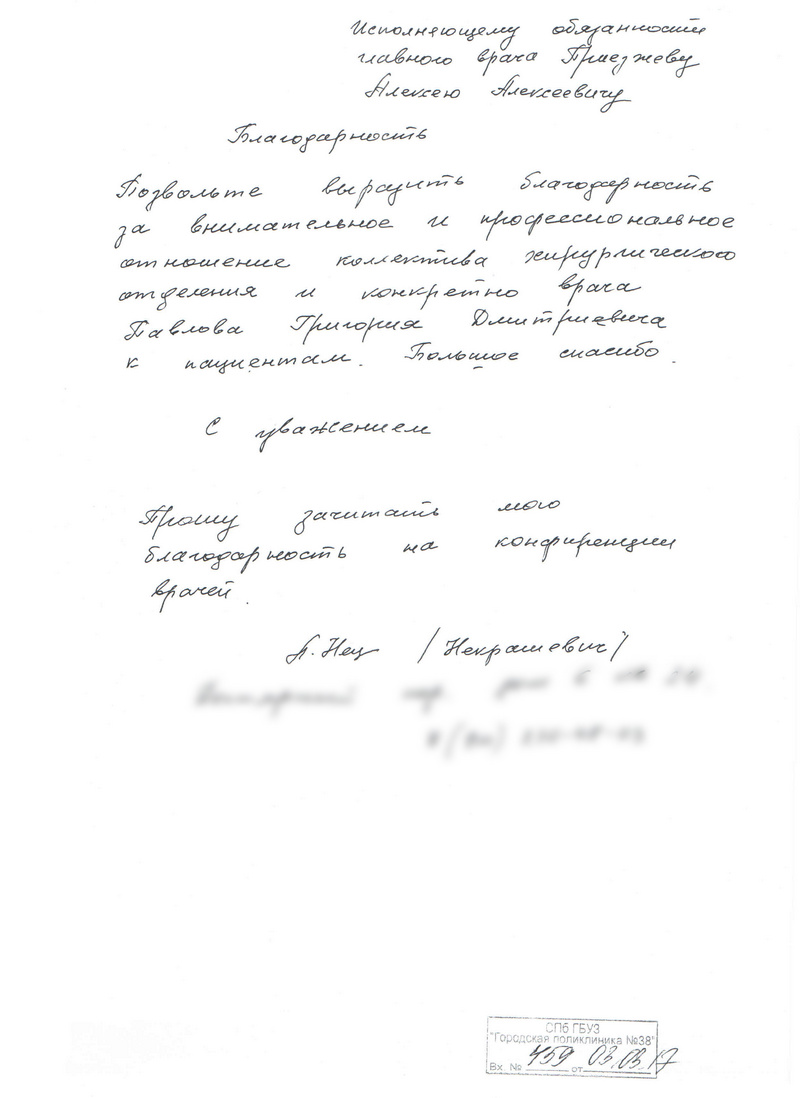 Исполняющему обязанности
главного врача Приезжеву
Алексею Алексеевичу
Благодарность
Позвольте выразить благодарность
за внимательное и профессиональное
отношение коллектива хирургического
отделения и конкретно врача
Павлова Григория Дмитриевича
к пациентам. Большое спасибо.
С уважением
Прошу зачитать мою
благодарность на конфиренции
врачей.
/Некрашевич/
СПб ГБУЗ
"Городская поликлиника №38"
Вх. № 459 от 03.03.17